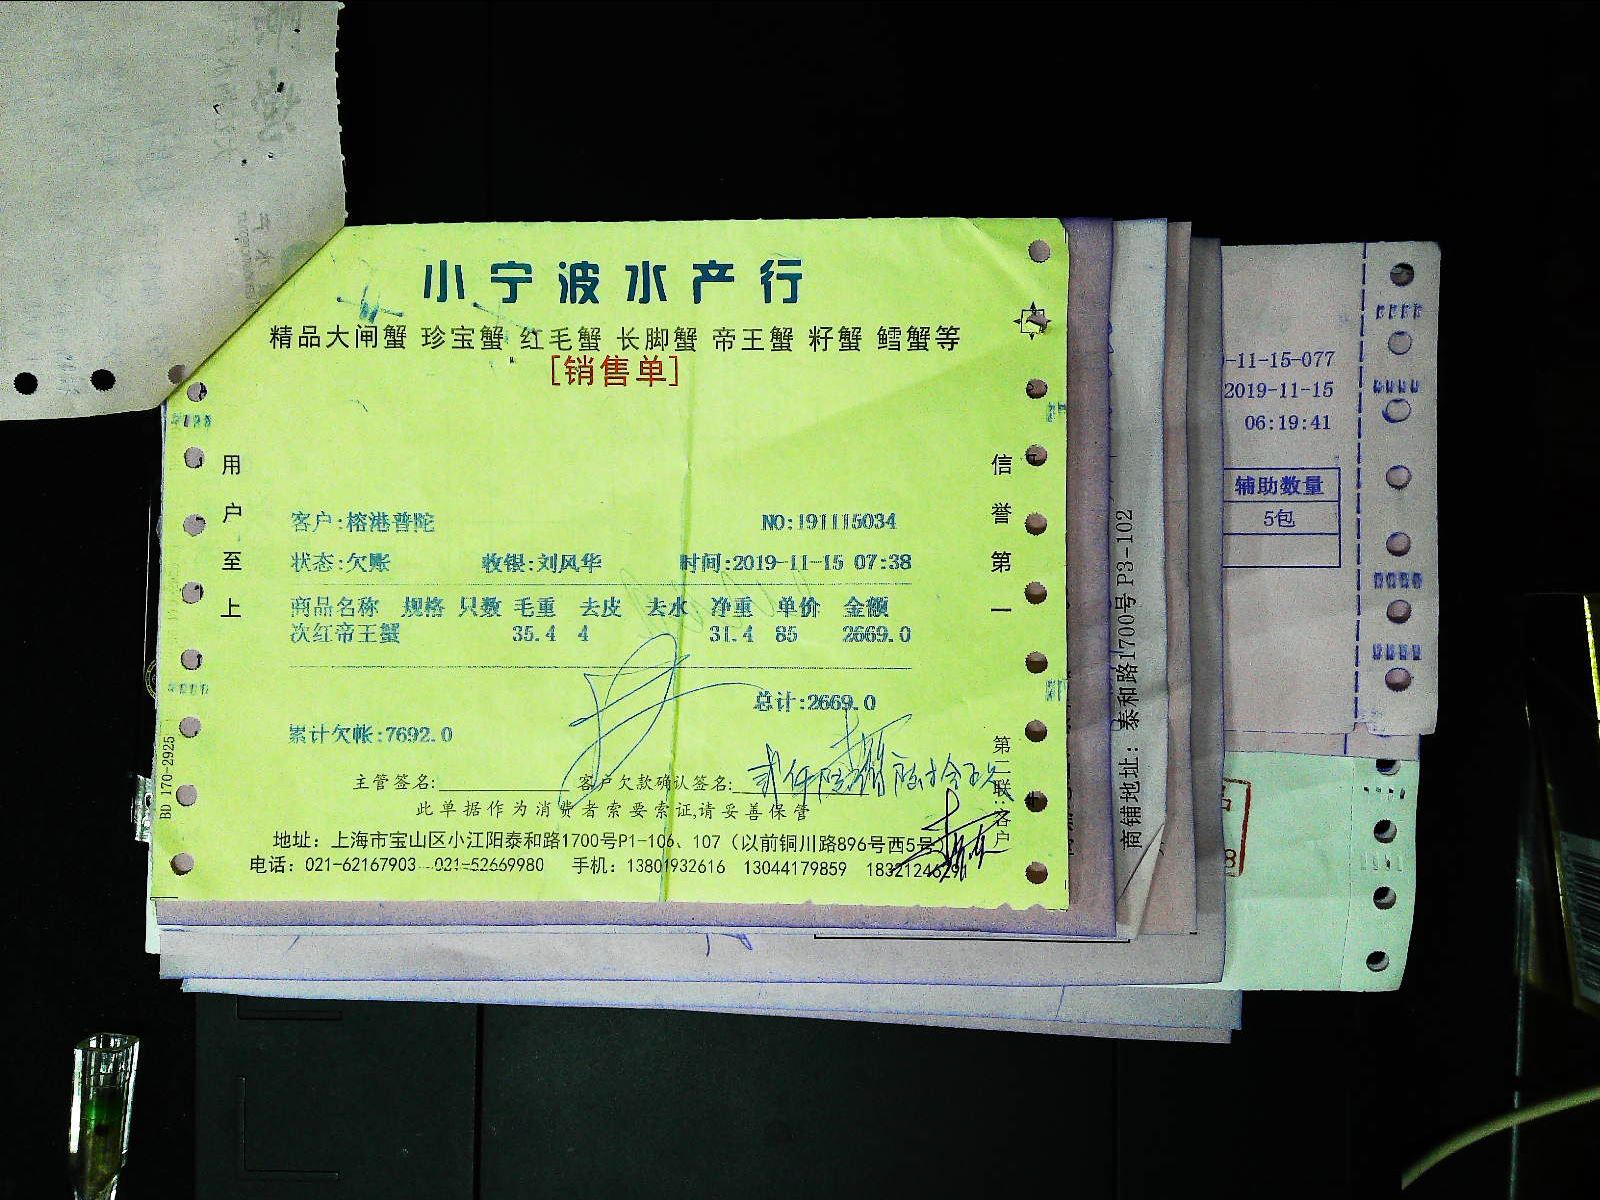 小宁波水产行
精品大闸蟹 珍宝蟹 红毛蟹 长脚蟹 帝王蟹 籽蟹 鳕蟹等
[销售单]
用户至上
信誉第一
客户:榕港普陀 NO:191115034
状态:欠账 收银:刘风华 时间:2019-11-15 07:38
商品名称 规格 只数 毛重 去皮 去水 净重 单价 金额
次红帝王蟹 35.4 4 31.4 85 2669.0
总计:2669.0
累计欠帐:7692.0
主管签名: 客户欠款确认签名:
此单据作为消费者索要索证,请妥善保管
地址：上海市宝山区小江阳泰和路1700号P1-106、107（以前铜川路896号西5号
电话：021-62167903 021-52669980 手机：13801932616 13044179859
第二联:客户
BD 170-2925
商铺地址：泰和路1700号 P3-102
-11-15-077
2019-11-15
06:19:41
辅助数量
5包